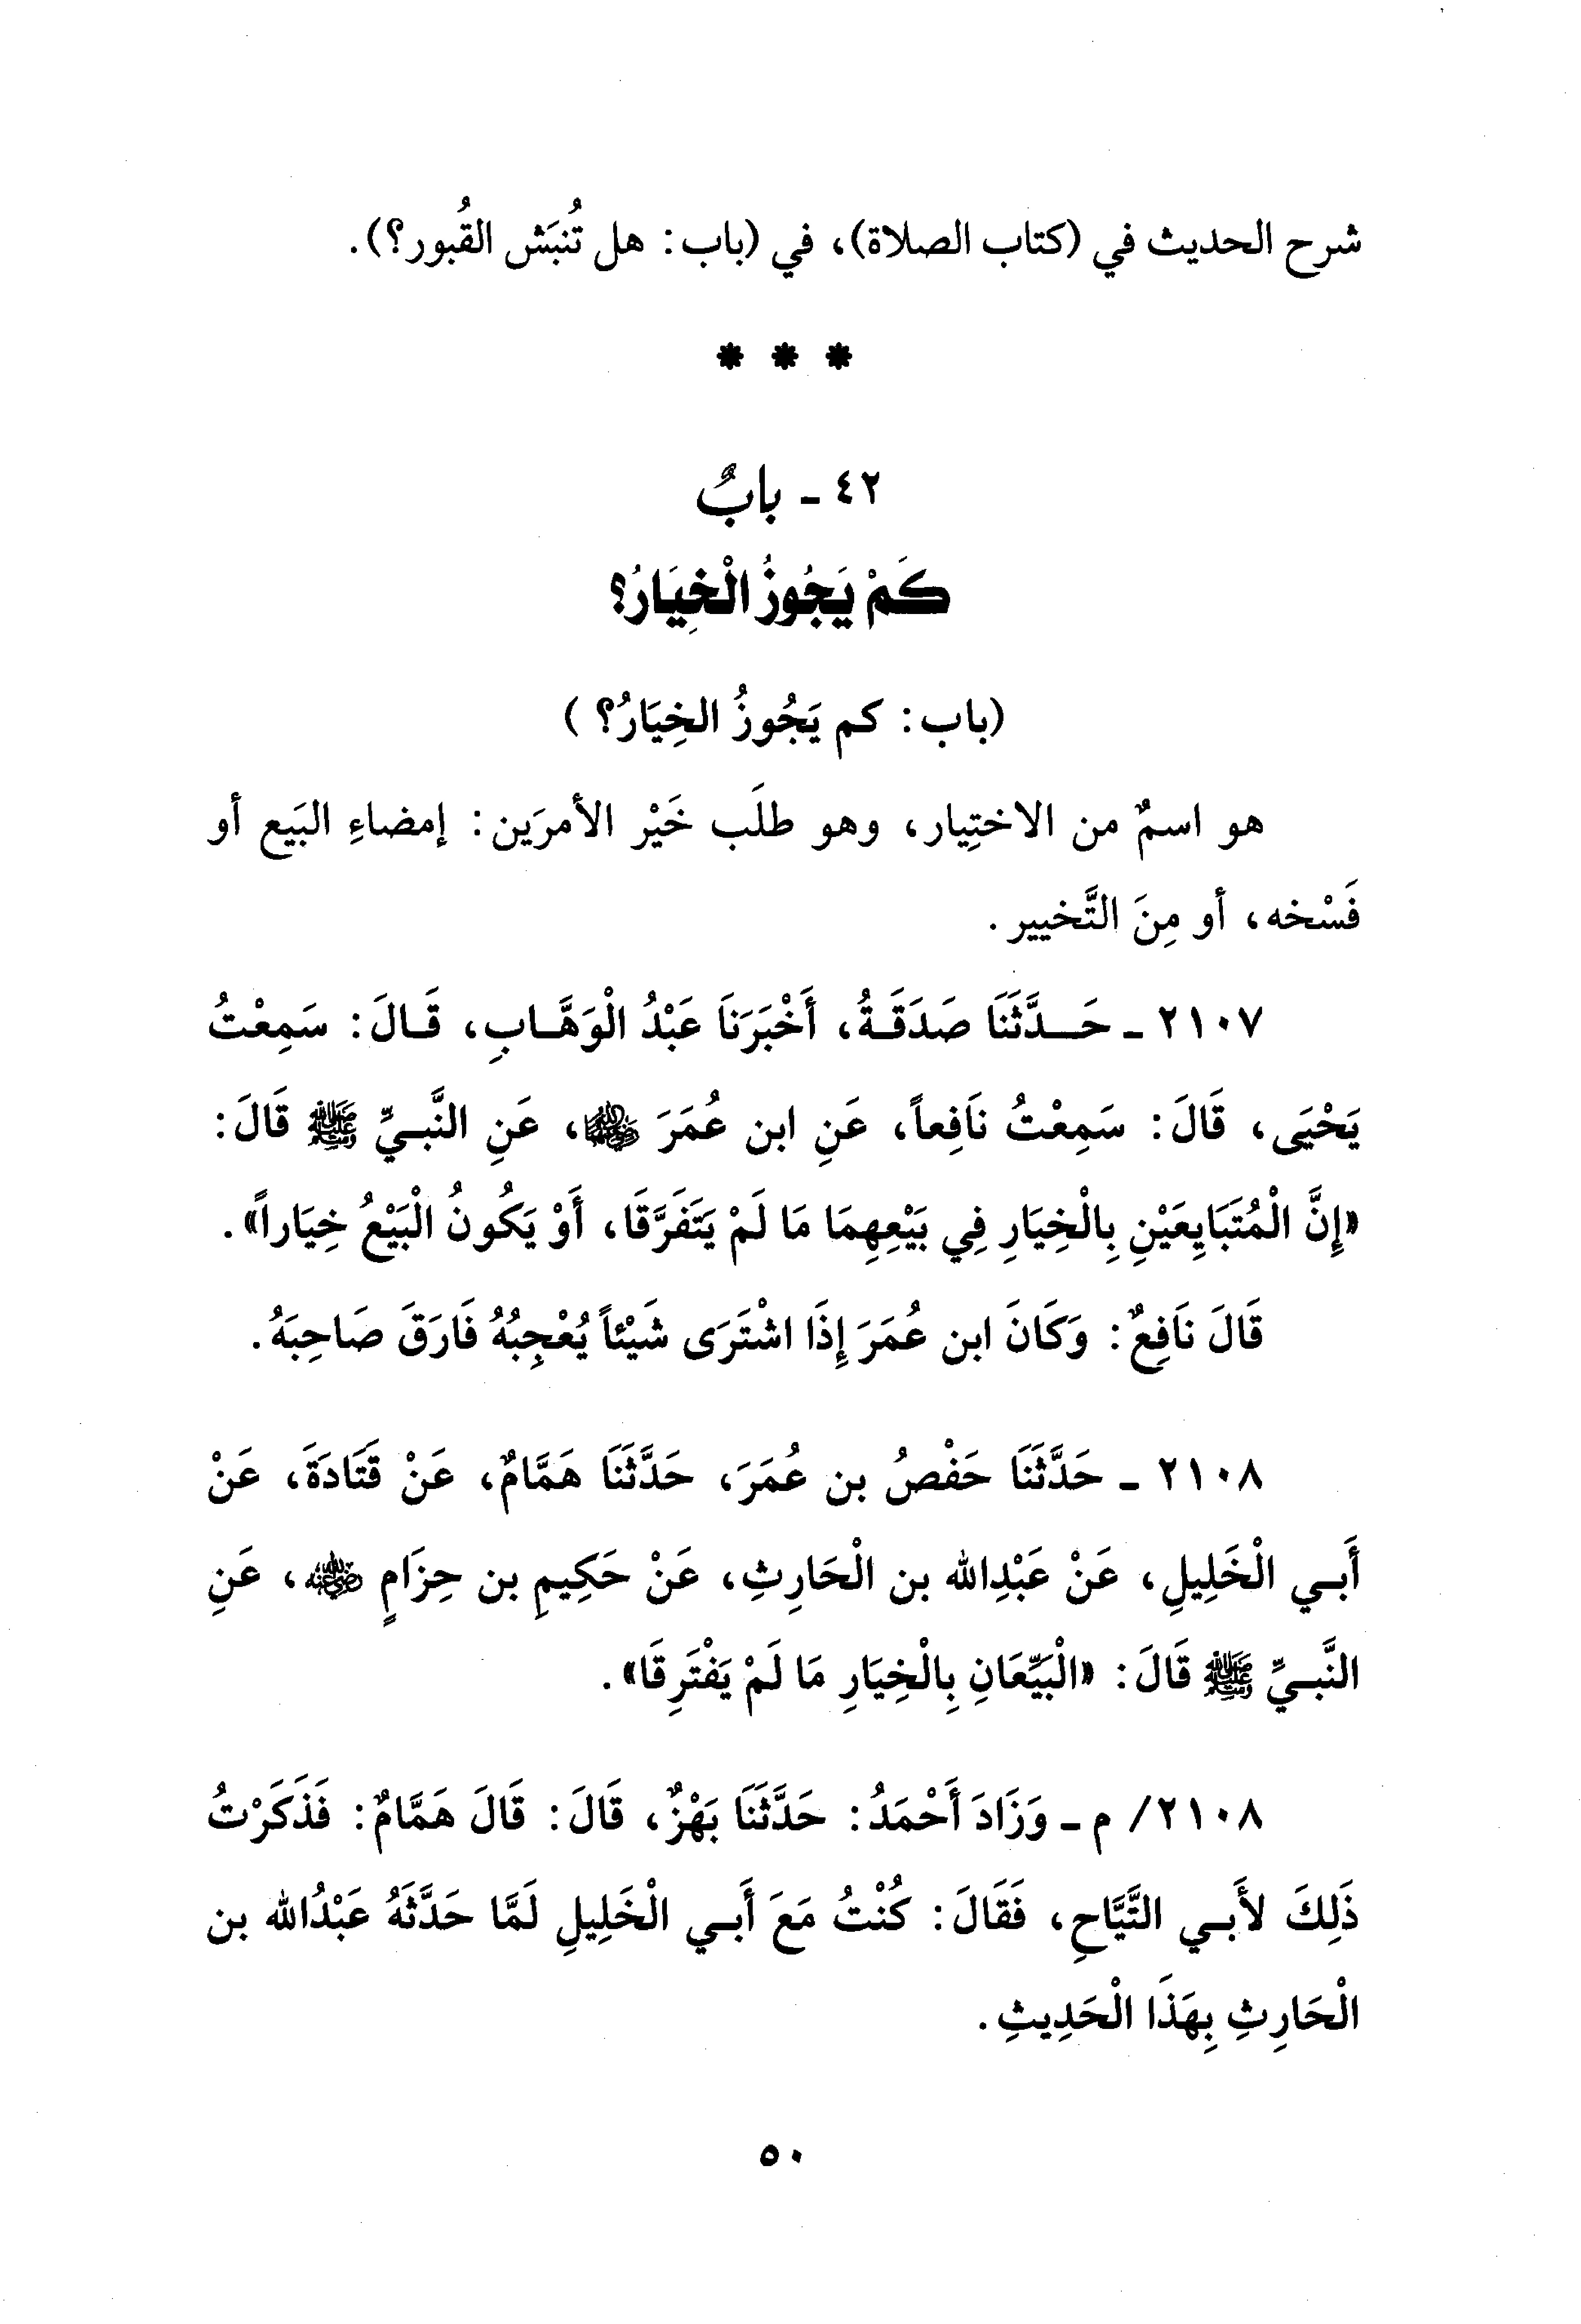 شرح الحديث في (كتاب الصلاة)، في (باب: هل تُنبَش القُبور؟).
* * *
٤٢ - بابٌ
كَمْ يَجُوزُ الْخِيَارُ؟
(باب: كم يَجُوزُ الخِيَارُ؟ )
هو اسمٌ من الاختِيار، وهو طلَب خَيْر الأمرَين: إمضاءِ البَيع أو
فَسْخه، أو مِنَ التَّخيير.
٢١٠٧ - حَـدَّثَنَا صَدَقَـةُ، أَخْبَرَنَا عَبْدُ الْوَهَّـابِ، قَـالَ: سَمِعْتُ
يَحْيَى، قَالَ: سَمِعْتُ نَافِعاً، عَنِ ابن عُمَرَ رضي الله عنهما، عَنِ النَّبـيِّ ﷺ قَالَ:
«إِنَّ الْمُتَبَايِعَيْنِ بِالْخِيَارِ فِي بَيْعِهِمَا مَا لَمْ يَتَفَرَّقَا، أَوْ يَكُونُ الْبَيْعُ خِيَاراً».
قَالَ نَافِعٌ: وَكَانَ ابن عُمَرَ إِذَا اشْتَرَى شَيْئاً يُعْجِبُهُ فَارَقَ صَاحِبَهُ.
٢١٠٨ - حَدَّثَنَا حَفْصُ بن عُمَرَ، حَدَّثَنَا هَمَّامٌ، عَنْ قَتَادَةَ، عَنْ
أَبـي الْخَلِيلِ، عَنْ عَبْدِالله بن الْحَارِثِ، عَنْ حَكِيمِ بن حِزَامٍ رضي الله عنه، عَنِ
النَّبـيِّ ﷺ قَالَ: «الْبَيِّعَانِ بِالْخِيَارِ مَا لَمْ يَفْتَرِقَا».
٢١٠٨/ م - وَزَادَ أَحْمَدُ: حَدَّثَنَا بَهْزٌ، قَالَ: قَالَ هَمَّامٌ: فَذَكَرْتُ
ذَلِكَ لأَبـي التَّيَّاحِ، فَقَالَ: كُنْتُ مَعَ أَبـي الْخَلِيلِ لَمَّا حَدَّثَهُ عَبْدُالله بن
الْحَارِثِ بِهَذَا الْحَدِيثِ.
٥٠